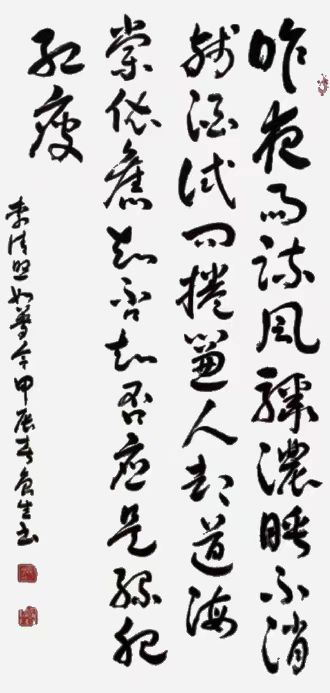 昨夜雨疏風驟濃睡不消
殘酒試問捲簾人却道海
棠依舊知否知否應是綠肥
紅瘦
李清照如夢令甲辰春